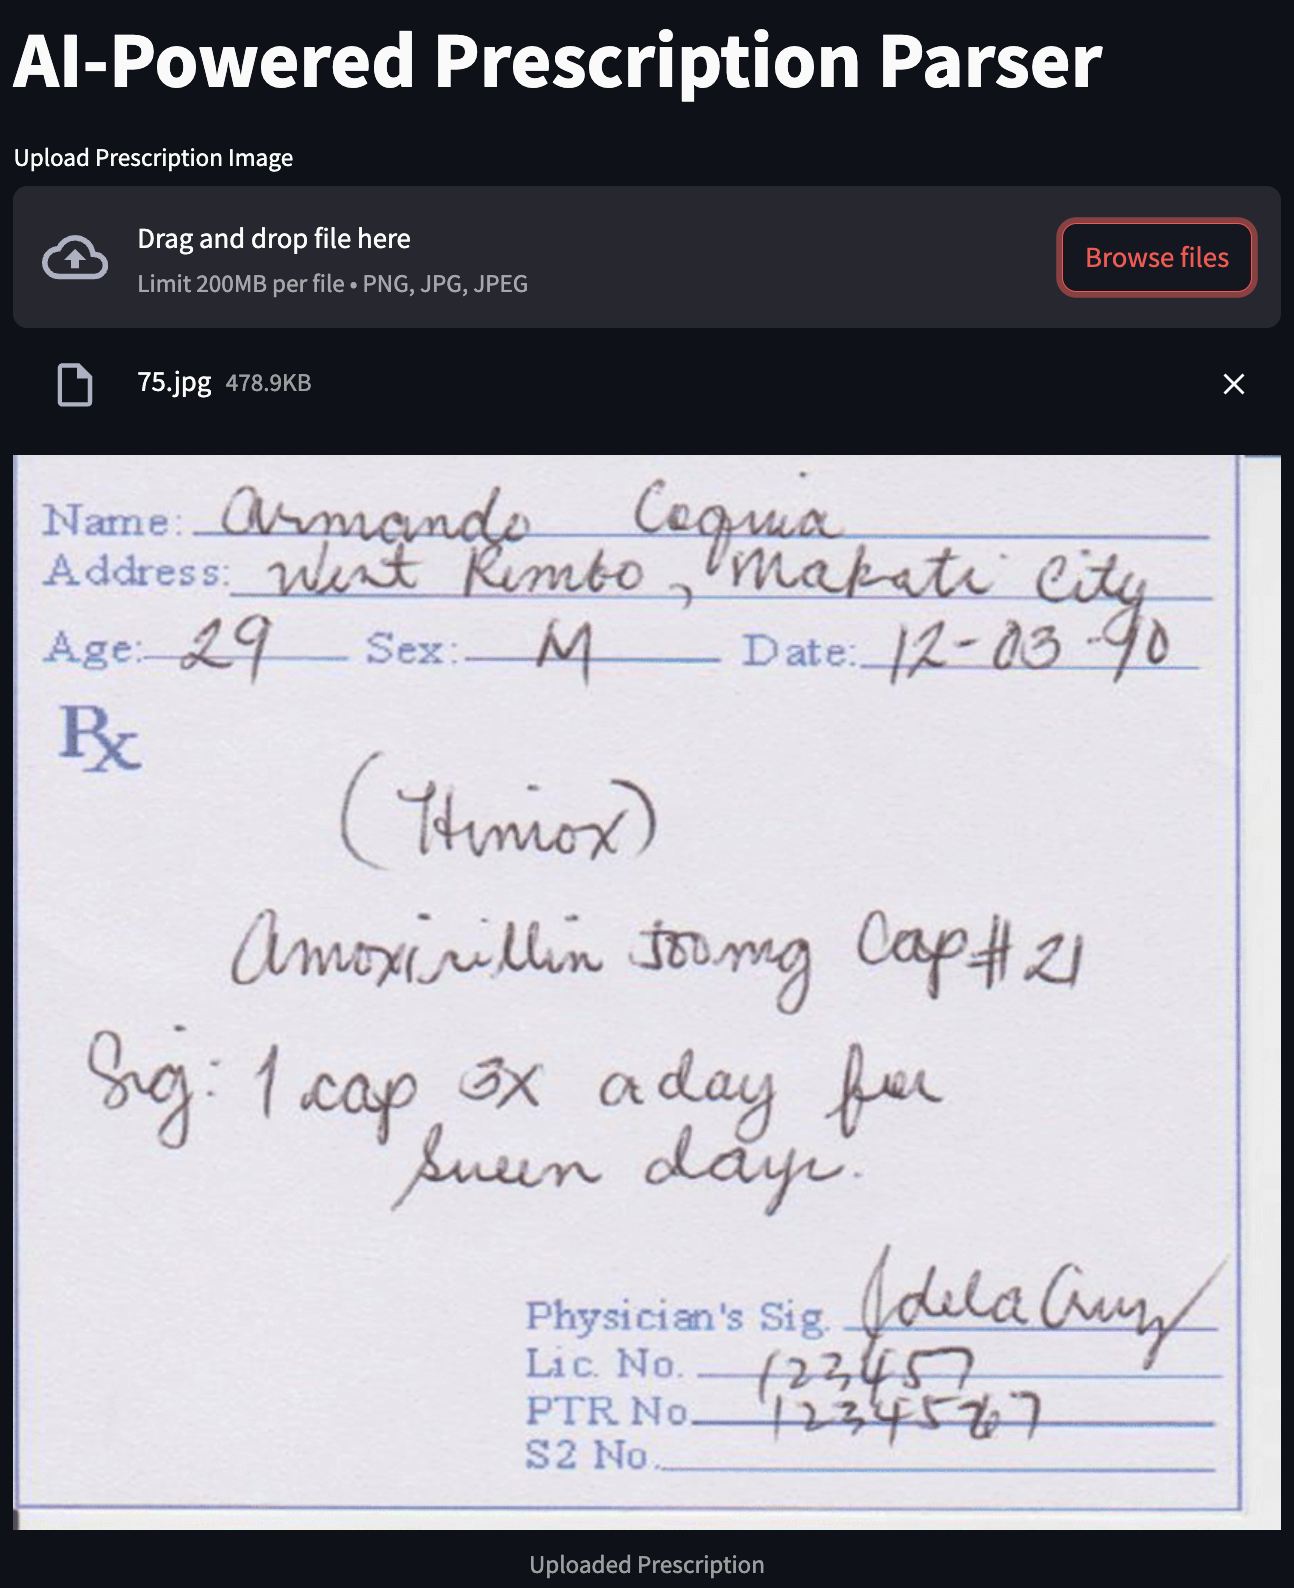 AI-Powered Prescription Parser
Upload Prescription Image
Drag and drop file here
Limit 200MB per file • PNG, JPG, JPEG
Browse files
75.jpg 478.9KB
Name: Armando Coquia
Address: West Rembo, Makati City
Age: 29 Sex: M Date: 12-03-90
Rx
(Himox)
Amoxicillin 500mg Cap #21
Sig: 1 cap 3x a day for
seven days.
Physician's Sig. JdelaCruz
Lic. No. 123457
PTR No. 1234567
S2 No.
Uploaded Prescription